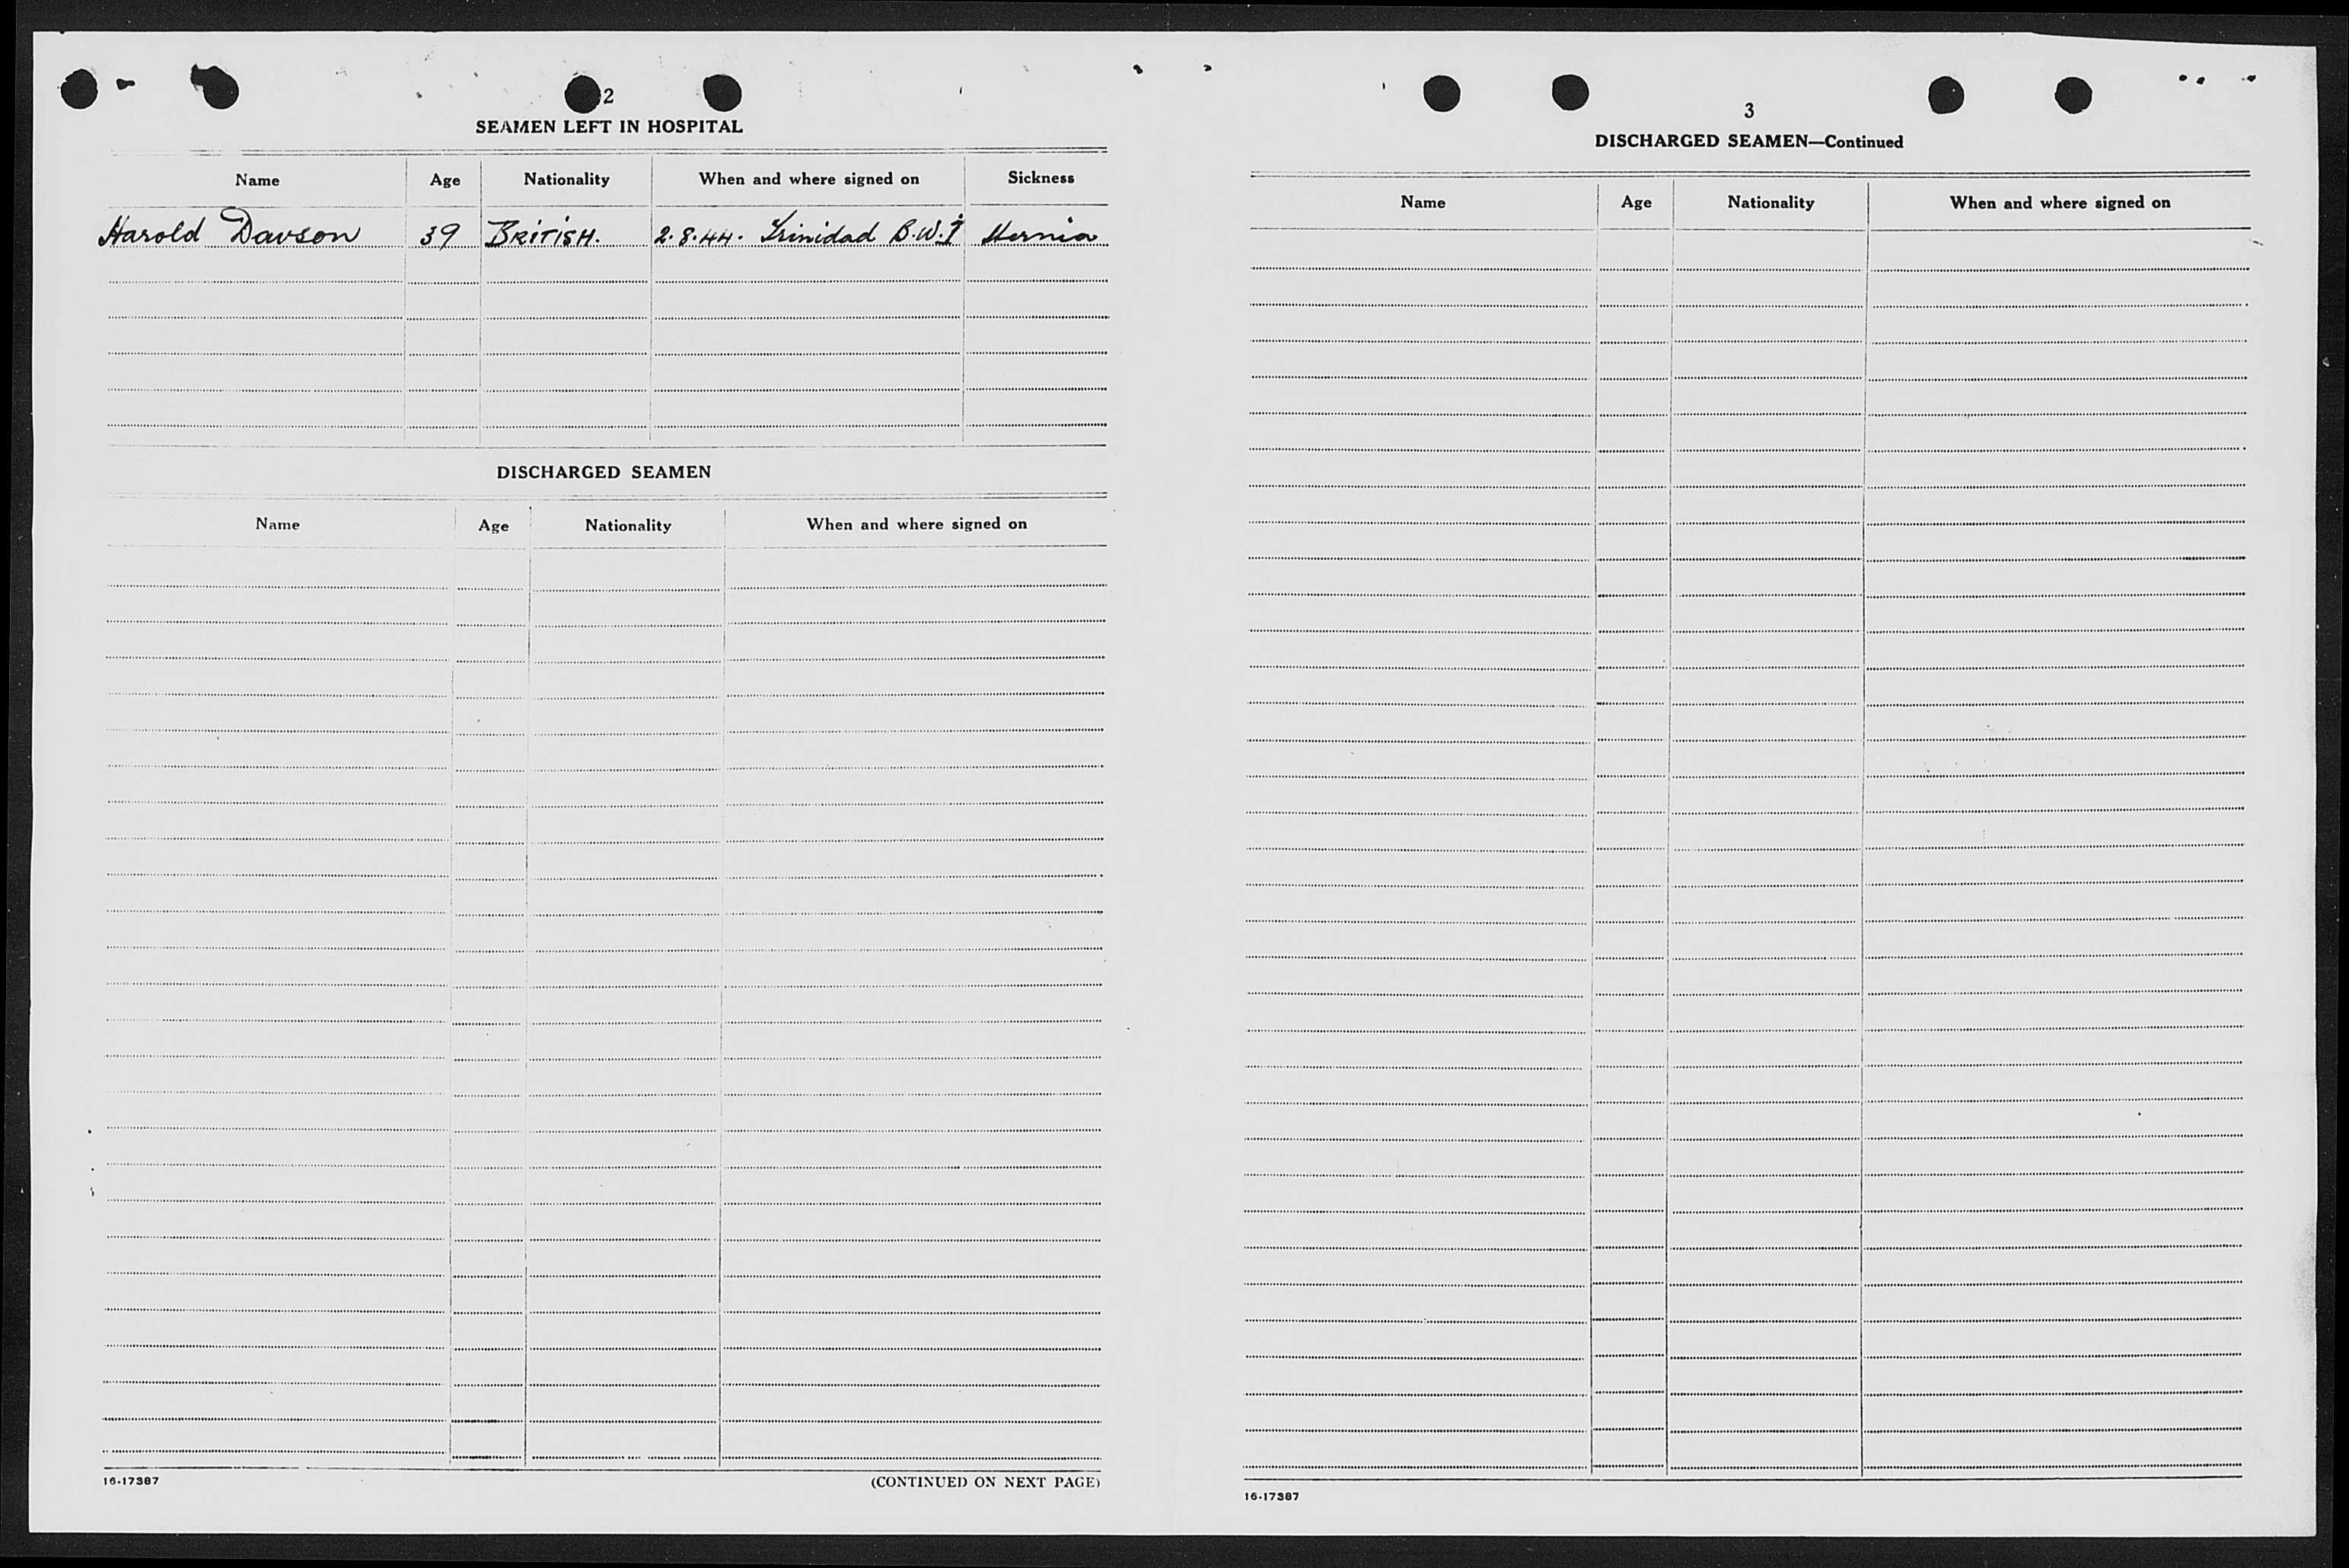 2
SEAMEN LEFT IN HOSPITAL
Name Age Nationality When and where signed on Sickness
Harold Dawson 39 BRITISH. 2.8.44. Trinidad B.W.I Hernia
DISCHARGED SEAMEN
Name Age Nationality When and where signed on
16-17387 (CONTINUED ON NEXT PAGE)
3
DISCHARGED SEAMEN—Continued
Name Age Nationality When and where signed on
16-17387